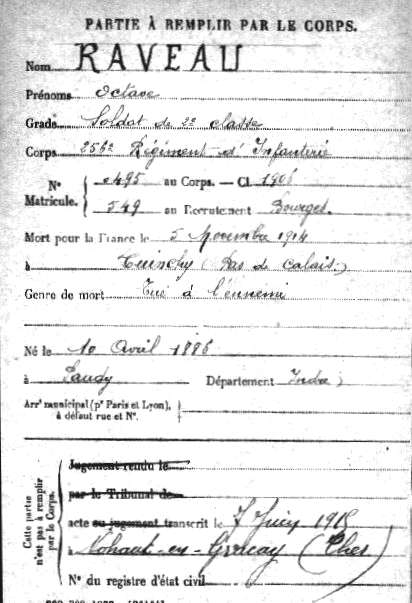 PARTIE À REMPLIR PAR LE CORPS.
Nom RAVEAU
Prénoms Octave
Grade Soldat de 2e classe
Corps 256e Régiment d'Infanterie
N° Matricule. 0495 au Corps. — Cl. 1906
549 au Recrutement Bourges
Mort pour la France le 5 Novembre 1914
à Cuinchy (Pas de Calais)
Genre de mort Tué à l'ennemi
Né le 10 Avril 1886
à Paudy Département Indre
Arrt municipal (pr Paris et Lyon), à défaut rue et N°.
Cette partie n'est pas à remplir par le Corps.
Jugement rendu le
par le Tribunal de
acte ou jugement transcrit le 7 Juin 1915
à Nohant-en-Graçay (Cher)
N° du registre d'état civil